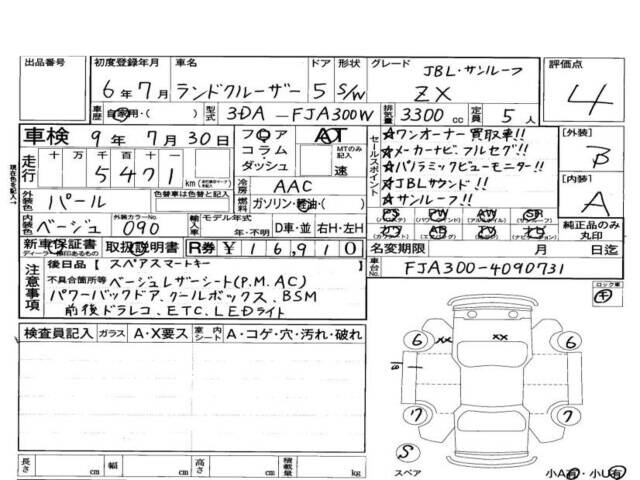 出品番号
初度登録年月
6年7月
車名
ランドクルーザー
ドア
5
形状
S/W
グレード
JBL・サンルーフ
ZX
評価点
4
車歴
自家用・( )
型式
3DA-FJA300W
排気量
3300cc
定員
5人
車検
9年7月30日
フロア
コラム・
ダッシュ
AT
MTのみ記入
速
セールスポイント
☆ワンオーナー買取車!!
☆メーカーナビ、フルセグ!!
☆パノラミックビューモニター!!
☆JBLサウンド!!
☆サンルーフ!!
PS
PW
AW
SR
【外装】
B
【内装】
A
走行
十 万 千 百 十 一
5 4 7 1
km
外装色
パール
色替車は色替と記入
冷房
AAC
燃料
ガソリン・軽油・( )
内装色
ベージュ
外装カラーNo.
090
輸入車
モデル年式
年・不明
D車・並
右H・左H
純正品のみ丸印
新車保証書
ディーラー捺印あるもの
取扱説明書
R券
¥16,910
名変期限
月
日迄
注意事項
後日品【スペアスマートキー
不具合箇所等 ベージュレザーシート(P.M.AC)
パワーバックドア、クールボックス、BSM
前後ドラレコ、ETC、LEDライト
車台No.
FJA300-4090731
ロック車
キ
検査員記入
ガラス
A・X要ス
室内シート
A・コゲ・穴・汚れ・破れ
6
XX
XX
6
7
7
S
スペア
長さ
cm
幅
cm
高さ
cm
積載量
kg
小A有・小U有
現在色を記入